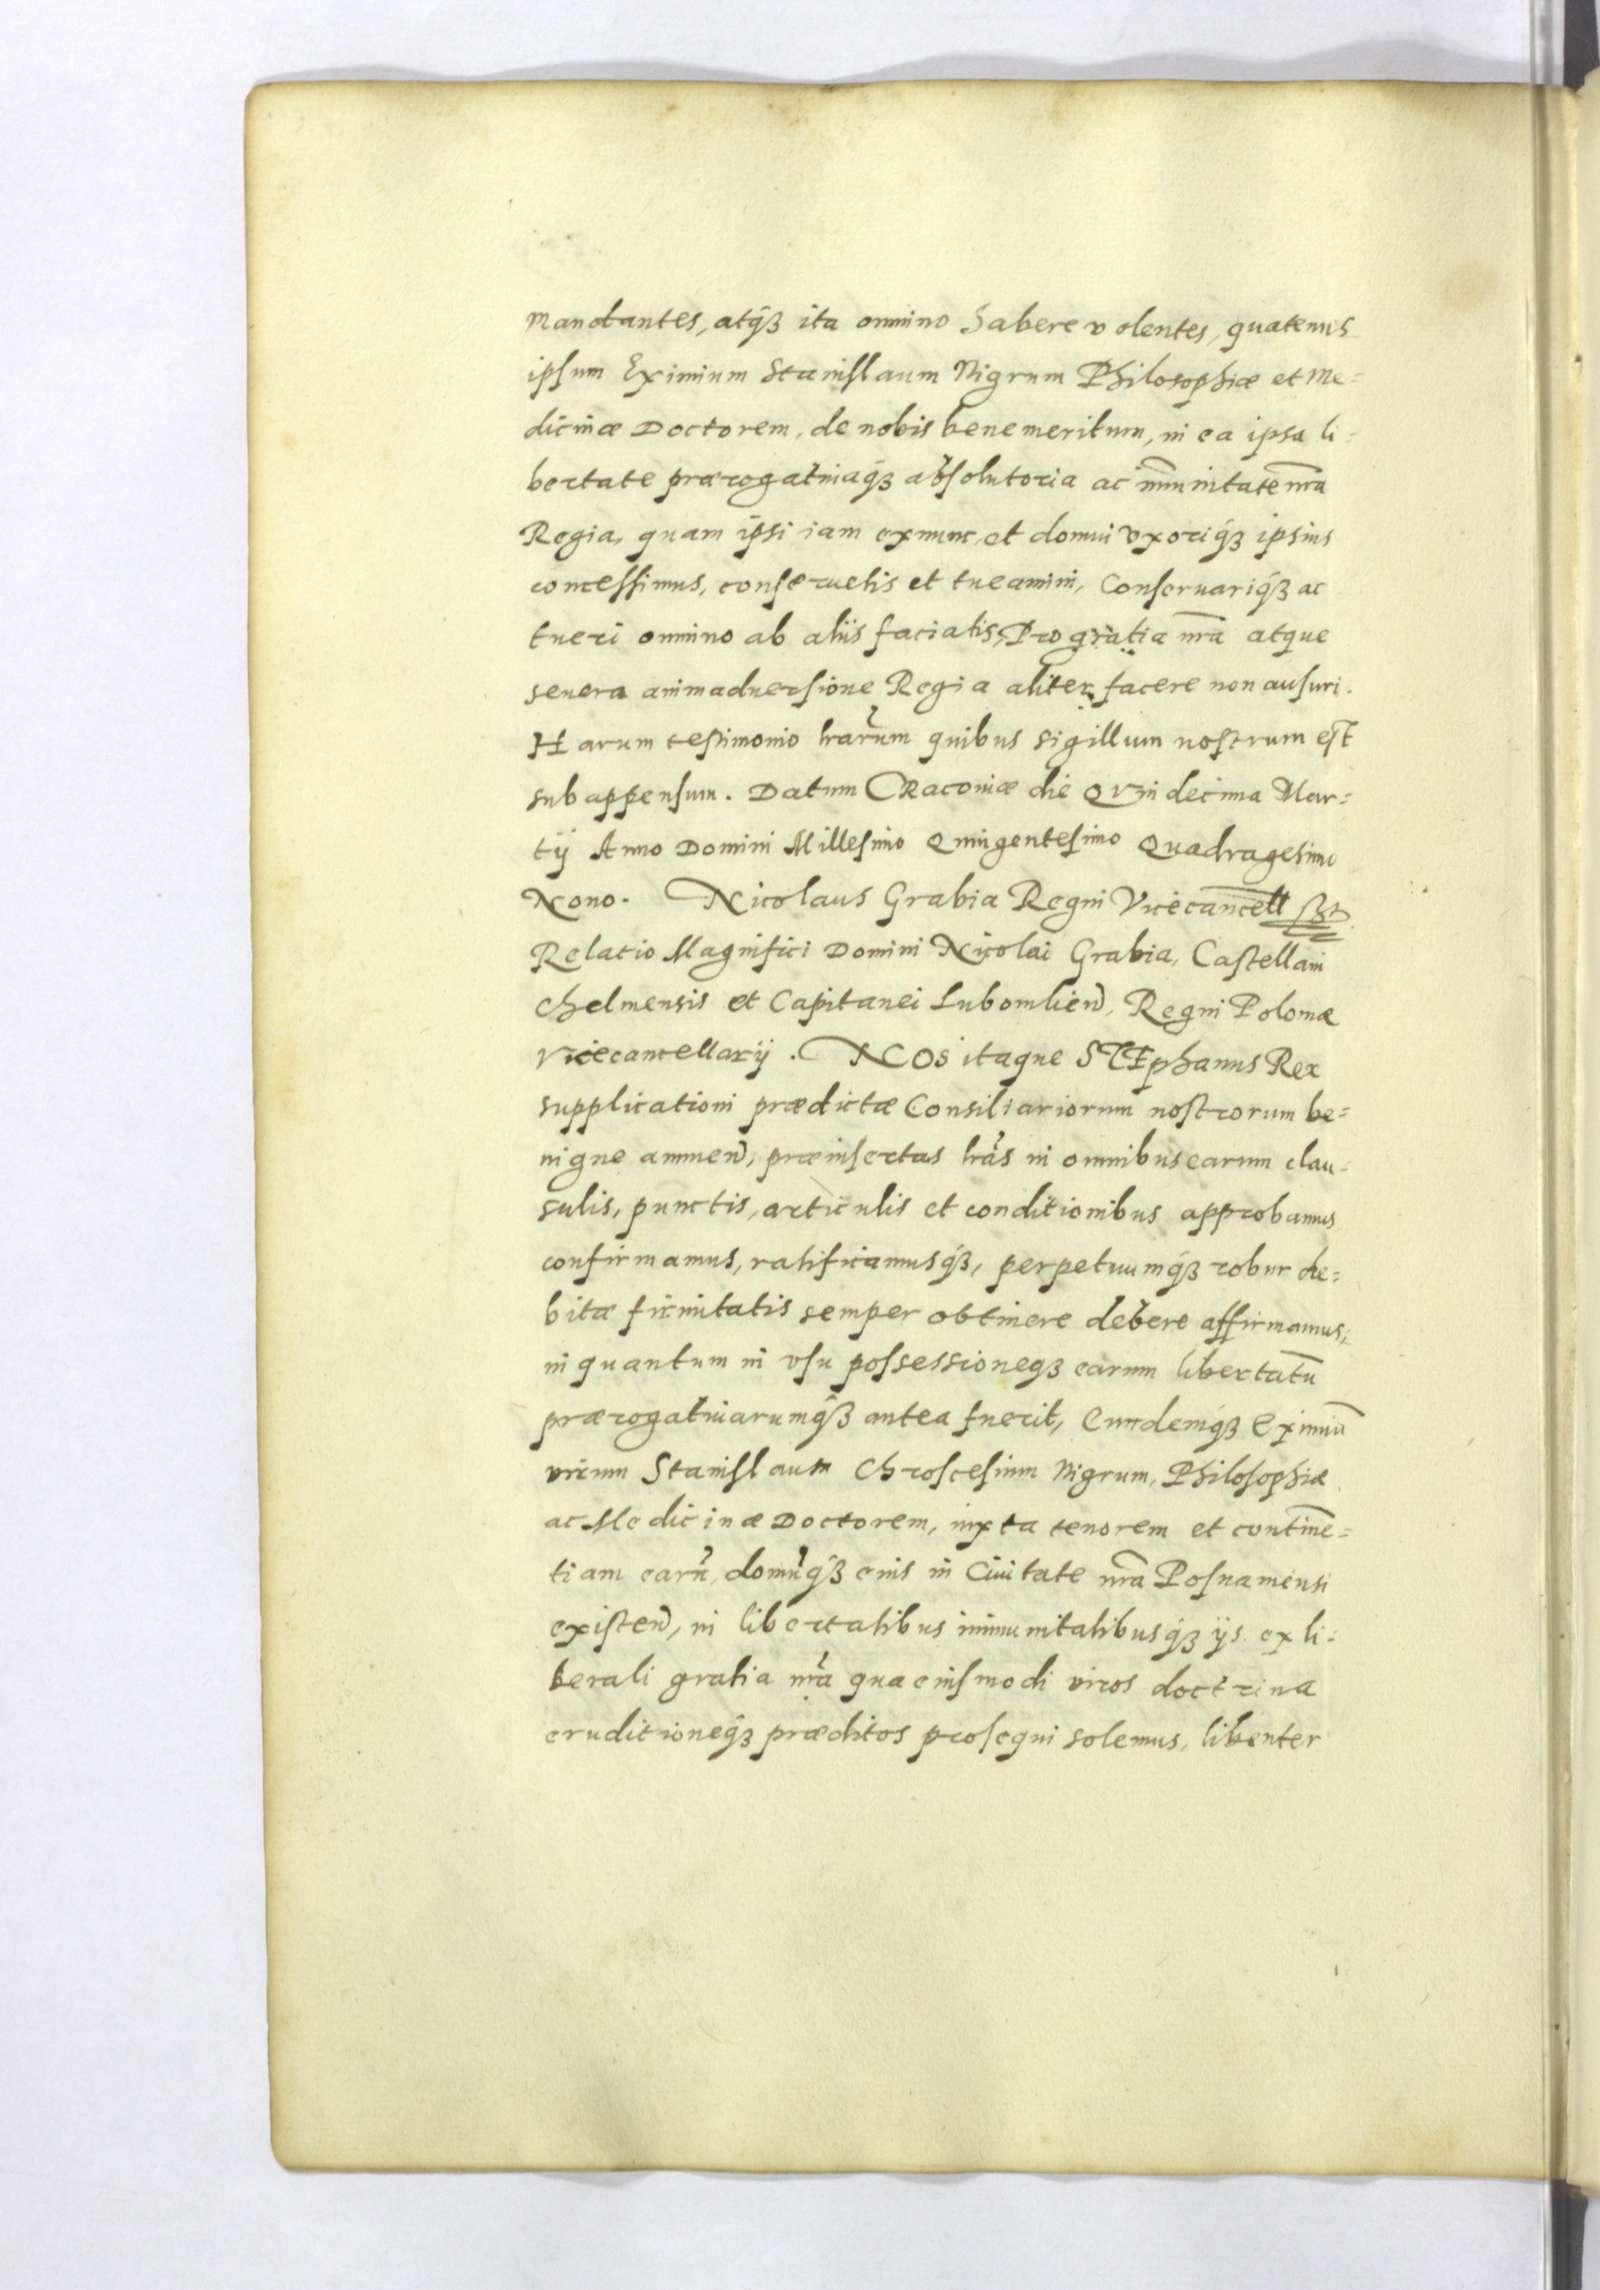 Mandantes, atq́ꝫ ita omnino habere volentes, quatenus
ipsum Eximium Stanislaum Nigrum Philosophiæ et Me=
dicinæ Doctorem, de nobis benemeritum, in ea ipsa li=
bertate prærogatiuaq́ꝫ absolutoria ac im̄unitate nr̄a
Regia, quam ipsi iam exnunc, et domui vxoriq́ꝫ ipsius
concessimus, conseruetis et tueamini, Conseruariq́ꝫ ac
tueri omnino ab aliis faciatis, Pro gratia nr̄a atque
seuera animaduersione Regia aliter facere non ausuri.
Harum testimonio lrarum quibus sigillum nostrum est
subappensum. Datum Cracouiæ die Quindecima Mar=
tij Anno Domini Millesimo Quingentesimo Quadragesimo
Nono. Nicolaus Grabia Regni Vicecancell sst
Relatio Magnifici Domini Nicolai Grabia, Castellani
Chelmensis et Capitanei Lubomlien, Regni Poloniæ
Vicecancellarij. NOs itaque STEphanus Rex
supplicationi prædictæ Consiliariorum nostrorum be=
nigne annuen, præinsertas lras in omnibus earum clau=
sulis, punctis, articulis et conditionibus approbamus
confirmamus, ratificamusq́ꝫ, perpetuumq́ꝫ robur de=
bitæ firmitatis semper obtinere debere affirmamus;
in quantum in vsu possessioneqꝫ earum libertatū
prærogatiuarumq́ꝫ antea fuerit, Eundemq́ꝫ Eximiū
virum Stanislaum Chroscesium Nigrum, Philosophiæ
ac Medicinæ Doctorem, iuxta tenorem et continē=
tiam earū, domūq́ꝫ eius in Ciuitate nr̄a Posnaniensi
existen, in libertatibus immunitatibusq́ꝫ ijs ex li=
berali gratia nr̄a qua eiusmodi viros doctrina
eruditioneq́ꝫ præditos prosequi solemus, libenter